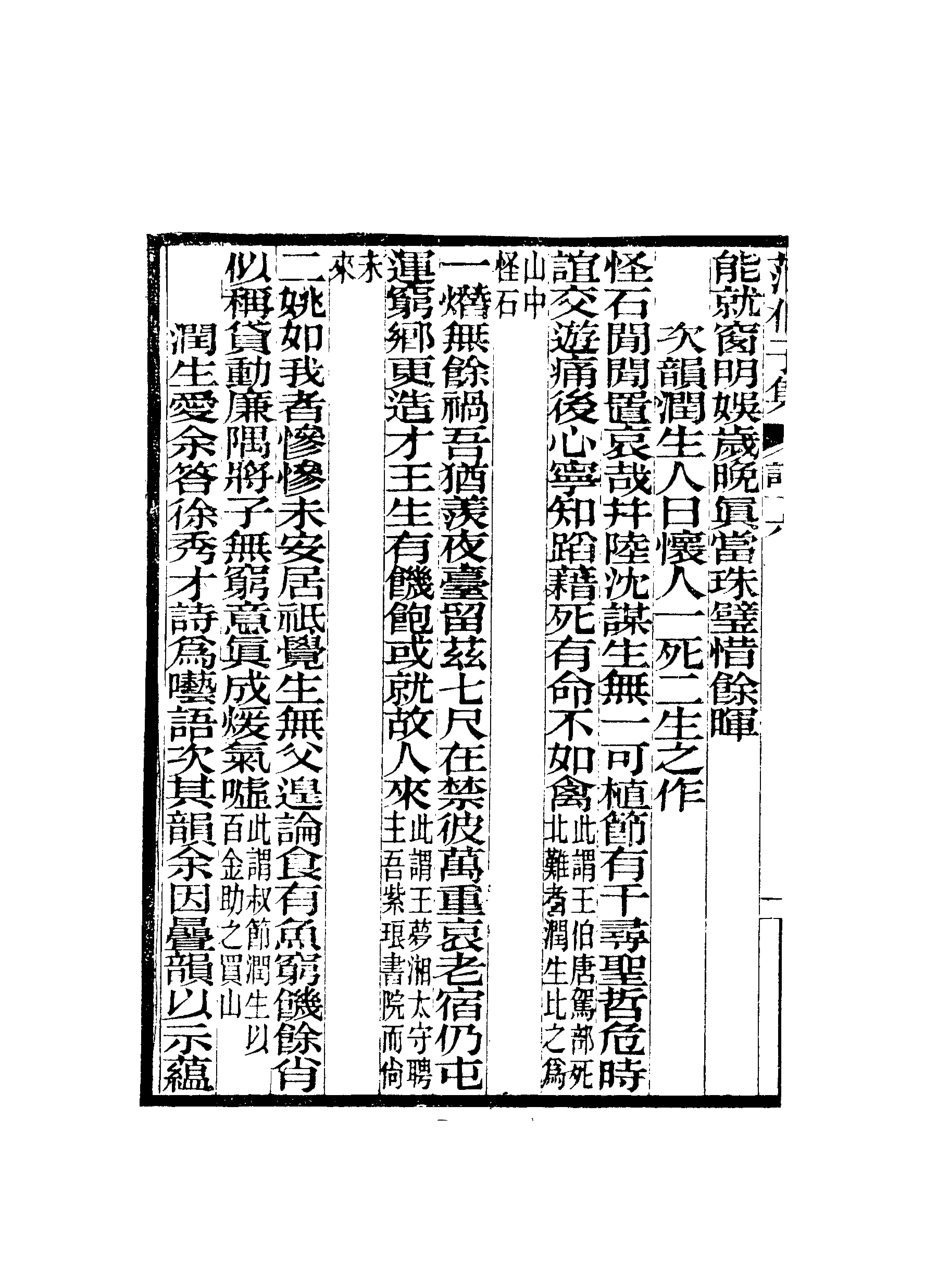 能就窗明娛歲晚眞當珠璧惜餘暉
次韻潤生人日懷人一死二生之作
怪石閒閒置哀哉幷陸沈謀生無一可植節有千尋聖哲危時
誼交遊痛後心寧知蹈藉死有命不如禽此謂王伯唐駕部死
北難者潤生比之爲
山中
怪石
一熸無餘禍吾猶羨夜臺留茲七尺在禁彼萬重哀老宿仍屯
運窮鄉更造才王生有饑飽或就故人來此謂王夢湘太守聘
主吾紫琅書院而尙
未
來
二姚如我者慘慘未安居祇覺生無父遑論食有魚窮饑餘肖
似稱貸動廉隅將子無窮意眞成煖氣噓此謂叔節潤生以
百金助之買山
潤生愛余答徐秀才詩爲囈語次其韻余因疊韻以示蘊